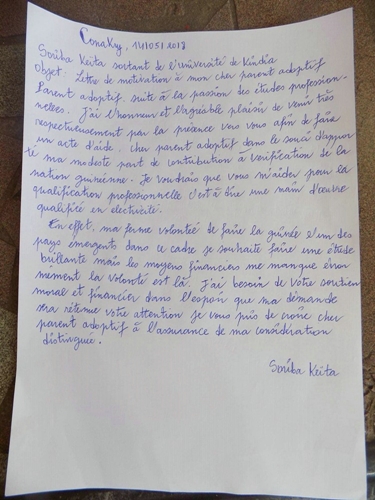 Conakry, 14/05/2018
Soriba Keita sortant de l'université de Kindia
Objet: Lettre de motivation à mon cher parent adoptif
Parent adoptif suite à la passion des études profession-
nelles. J'ai l'honneur et l'agréable plaisir de venir très
respectueusement par la présence vers vous afin de faire
un acte d'aide. cher parent adoptif dans le souci d'appor
té ma modeste part de contubution à vérification de la
nation guinéenne. Je voudrais que vous m'aider pour la
qualification professionnelle c'est à dire une main d'œuvre
qualifiée en électricité.
En effet, ma ferme volontée de faire la guinée l'un des
pays émergents dans ce cadre je souhaite faire une étude
brillante mais les moyens financiers me manque énor
mement la volonté est là. J'ai besoin de votre soutien
moral et financier dans l'espoir que ma demande
ma retienne votre attention je vous pris de croire cher
parent adoptif à l'assurance de ma considération
distinguée.
Soriba Keita